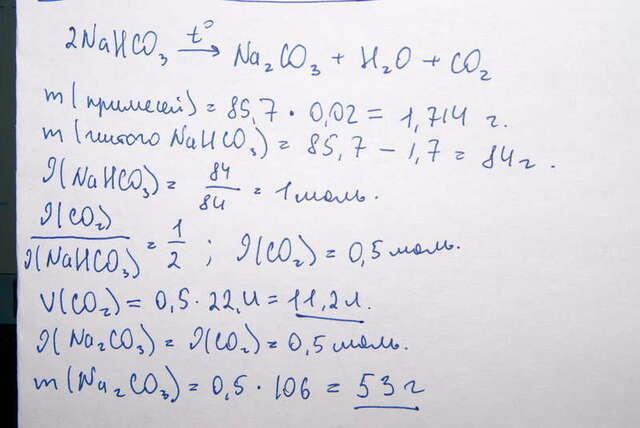 2NaHCO₃ —t°→ Na₂CO₃ + H₂O + CO₂
m(примесей) = 85,7 · 0,02 = 1,714 г.
m(чистого NaHCO₃) = 85,7 – 1,7 = 84г.
ν(NaHCO₃) = 84/84 = 1 моль.
ν(CO₂)/ν(NaHCO₃) = 1/2 ; ν(CO₂) = 0,5 моль.
V(CO₂) = 0,5 · 22,4 = 11,2 л.
ν(Na₂CO₃) = ν(CO₂) = 0,5 моль.
m(Na₂CO₃) = 0,5 · 106 = 53 г